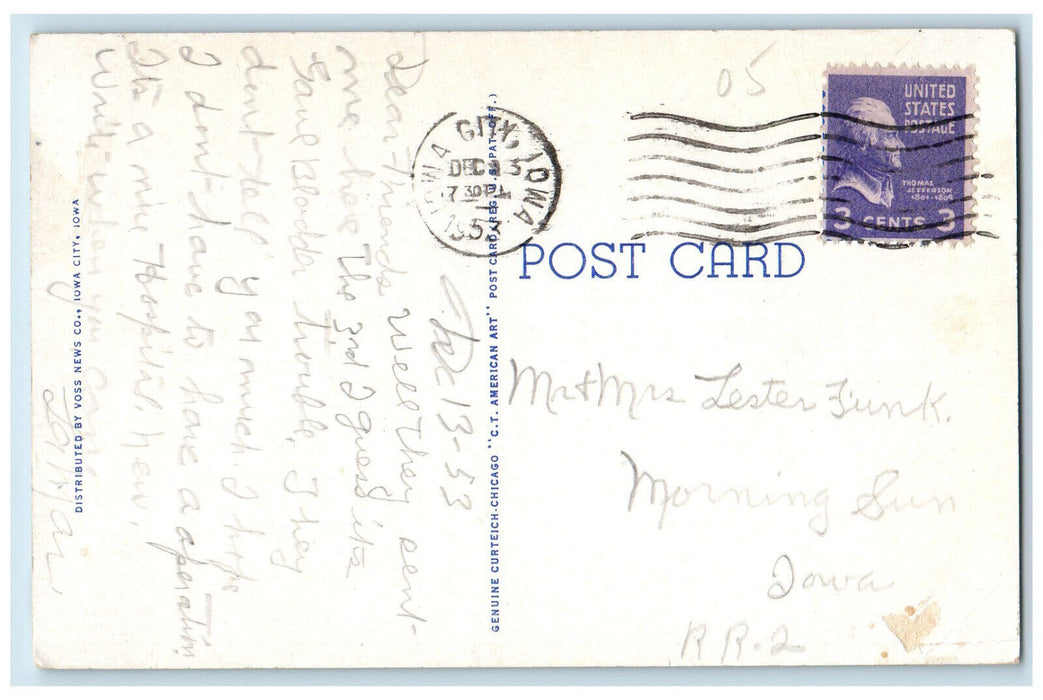 05
UNITED
STATES
POSTAGE
THOMAS
JEFFERSON
1801-1809
3 CENTS 3
IOWA CITY, IOWA
DEC 13
7 30 PM
1953
POST CARD
Mr & Mrs Lester Funk.
Morning Sun
Iowa
R R-2
GENUINE CURTEICH-CHICAGO "C.T. AMERICAN ART" POST CARD (REG. U.S. PAT. OFF.)
Dec 13-53
Dear Friends Well They sent
me here The 3rd I guess its
Gaul Bladder trouble, They
dont tell y ou much. I hope
I dont have to have a operation
Its a nice Hospital here.
Write when you can
DISTRIBUTED BY VOSS NEWS CO., IOWA CITY, IOWA